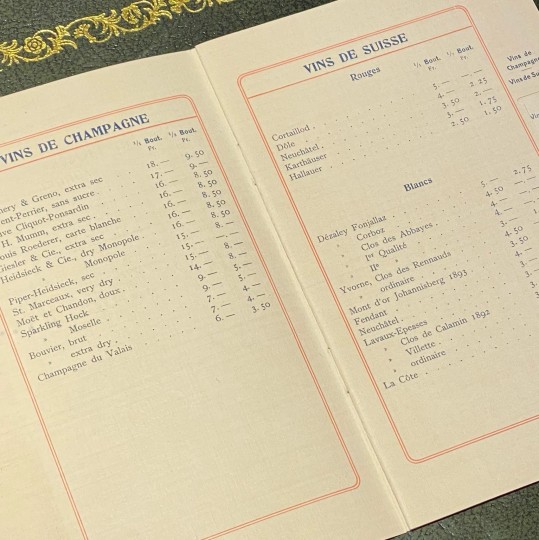 VINS DE CHAMPAGNE
1/1 Bout. 1/2 Bout.
Fr. Fr.
& Greno, extra sec 18.— 9.50
ent-Perrier, sans sucre 17.— 9.—
Cliquot-Ponsardin 16.— 8.50
H. Mumm, extra sec 16.— 8.50
ouis Roederer, carte blanche 16.— 8.50
Giesler & Cie., extra sec 16.— 8.50
Heidsieck & Cie., dry Monopole 16.— 8.50
" Monopole 15.— —.—
Piper-Heidsieck, sec 15.— 8.—
St. Marceaux, very dry 15.— 8.—
Moët et Chandon, doux 14.— 8.—
Sparkling Hock 9.— 5.—
" Moselle 9.— 5.—
Bouvier, brut 7.— 4.—
" extra dry 7.— 4.—
Champagne du Valais 6.— 3.50
VINS DE SUISSE
1/1 Bout. 1/2 Bout.
Fr. Fr.
Rouges
Cortaillod 5.— —.—
Dôle 4.— 2.25
Neuchâtel 3.50 2.—
Karthäuser 3.— 1.75
Hallauer 2.50 1.50
Blancs
Dézaley Fonjallaz 5.— 2.75
" Corboz 4.—
" Clos des Abbayes 4.50
" Ier Qualité 4.—
" IIe "
Yvorne, Clos des Rennauds
" ordinaire
Mont d'or Johannisberg 1893
Fendant
Neuchâtel
Lavaux-Epesses
" Clos de Calamin 1892
" Villette
" ordinaire
La Côte
Vins de
Champagne
Vins de Su